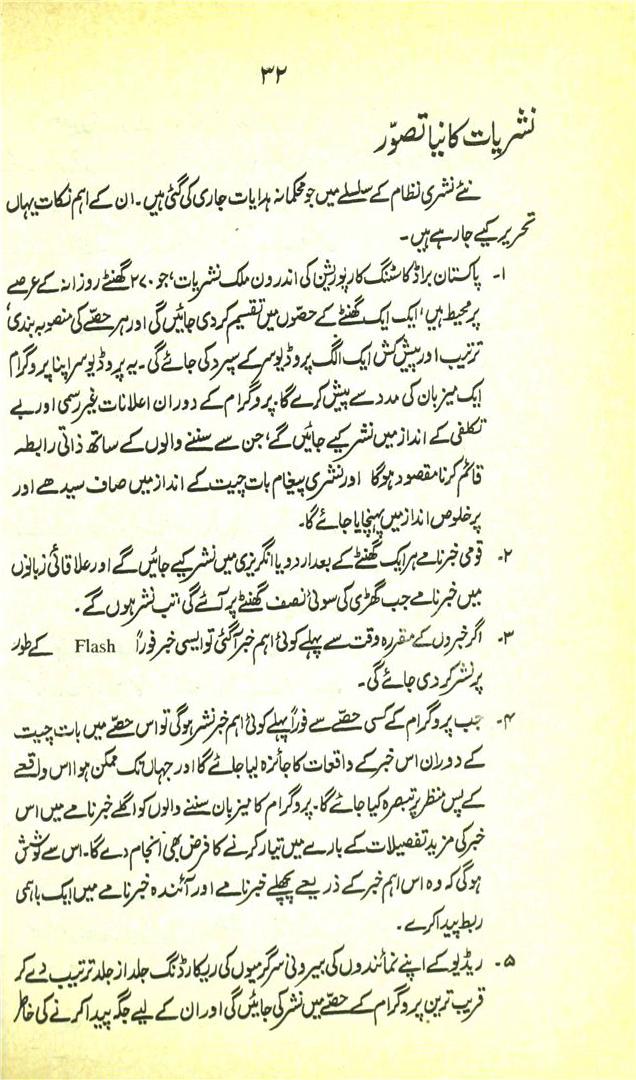 ۳۲
نشریات کا نیا تصوّر
نئے نشری نظام کے سلسلے میں جو محکمانہ ہدایات جاری کی گئی ہیں۔ ان کے اہم نکات یہاں
تحریر کیے جا رہے ہیں۔
۱۔ پاکستان براڈ کاسٹنگ کارپوریشن کی اندرون ملک نشریات، جو ۲۷۰ گھنٹے روزانہ کے عرصے
پر محیط ہیں، ایک ایک گھنٹے کے حصّوں میں تقسیم کر دی جائیں گی اور ہر حصّے کی منصوبہ بندی،
ترتیب اور پیش کش ایک الگ پروڈیوسر کے سپرد کی جائے گی۔ یہ پروڈیوسر اپنا پروگرام
ایک میزبان کی مدد سے پیش کرے گا۔ پروگرام کے دوران اعلانات غیر رسمی اور بے
تکلفی کے انداز میں نشر کیے جائیں گے، جن سے سننے والوں کے ساتھ ذاتی رابطہ
قائم کرنا مقصود ہوگا اور نشری پیغام بات چیت کے انداز میں صاف سیدھے اور
پر خلوص انداز میں پہنچایا جائے گا۔
۲۔ قومی خبرنامے ہر ایک گھنٹے کے بعد اردو یا انگریزی میں نشر کیے جائیں گے اور علاقائی زبانوں
میں خبرنامے جب گھڑی کی سوئی نصف گھنٹے پر آئے گی، تب نشر ہوں گے۔
۳۔ اگر خبروں کے مقررہ وقت سے پہلے کوئی اہم خبر آگئی تو ایسی خبر فوراً Flash کے طور
پر نشر کر دی جائے گی۔
۴۔ جب پروگرام کے کسی حصّے سے فوراً پہلے کوئی اہم خبر نشر ہوگی تو اس حصّے میں بات چیت
کے دوران اس خبر کے واقعات کا جائزہ لیا جائے گا اور جہاں تک ممکن ہوا اس واقعے
کے پس منظر پر تبصرہ کیا جائے گا۔ پروگرام کا میزبان سننے والوں کو اگلے خبرنامے میں اس
خبر کی مزید تفصیلات کے بارے میں تیار کرنے کا فرض بھی انجام دے گا۔ اس سے کوشش
ہوگی کہ وہ اس اہم خبر کے ذریعے پچھلے خبرنامے اور آئندہ خبرنامے میں ایک باہمی
ربط پیدا کرے۔
۵۔ ریڈیو کے اپنے نمائندوں کی بیرونی سرگرمیوں کی ریکارڈنگ جلد از جلد ترتیب دے کر
قریب ترین پروگرام کے حصّے میں نشر کی جائیں گی اور ان کے لیے جگہ پیدا کرنے کی خاطر